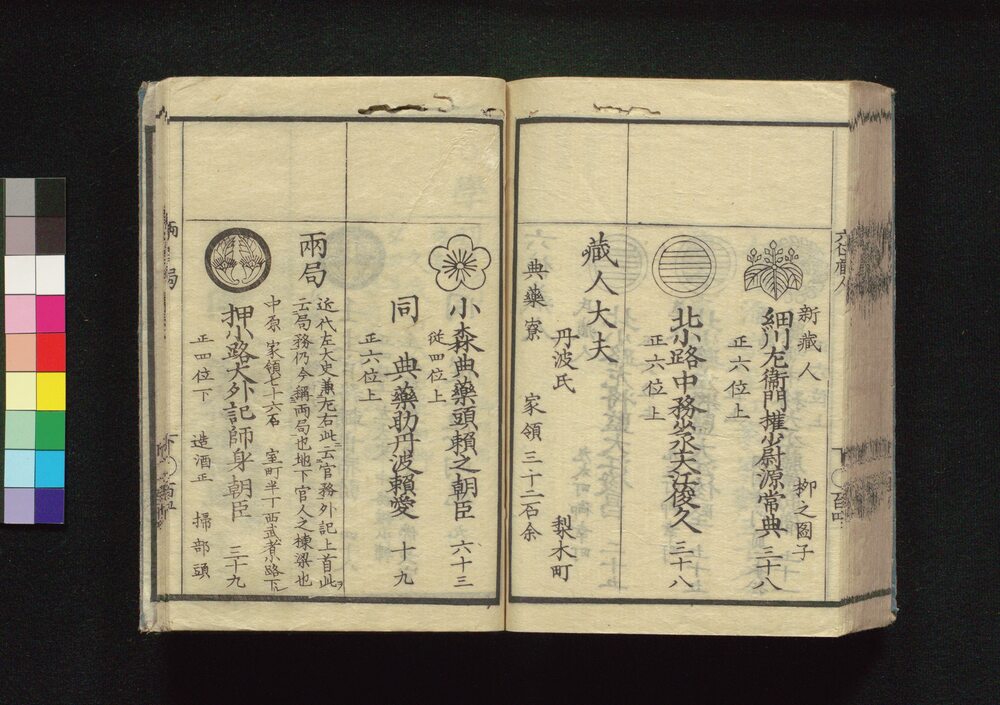 新蔵人
柳之圖子
細川左衛門権少尉源常典 三十八
正六位上
北小路中務少丞大江俊久 三十八
正六位上
藏人大夫
丹波氏 梨木町
典藥寮 家領三十二石余
小森典藥頭賴之朝臣 六十三
従四位上
同 典藥助丹波賴愛 十九
正六位上
兩局
近代左大史兼左右此ニ云官務外記上首此ヲ
云局務仍今稱兩局也地下官人之棟梁也
中原 家領七十六石 室町半丁西武者小路下ル
押小路大外記師身朝臣 三十九
正四位下 造酒正 掃部頭
兩局